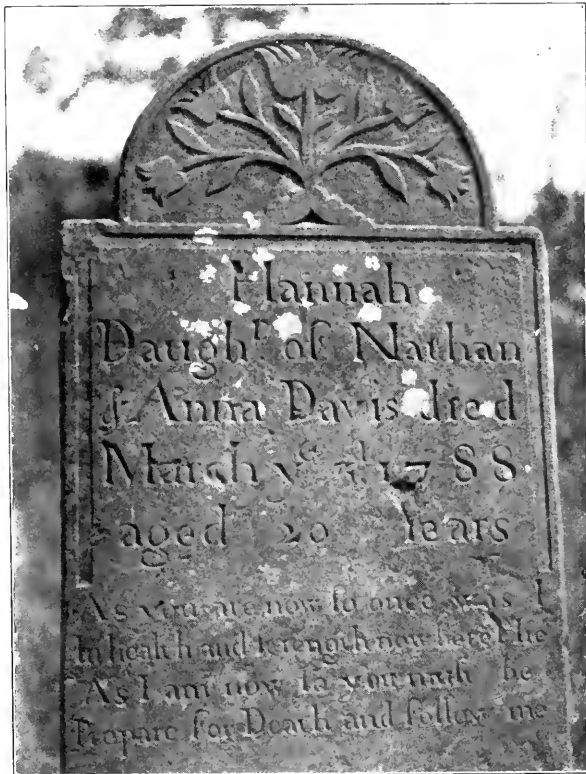 Hannah
Daugh.r of Nathan
& Anna Davis died
March ye 3d 1788
aged 20 Years
As you are now so once was I
In health and strength now here I lie
As I am now so you must be
Prepare for Death and follow me